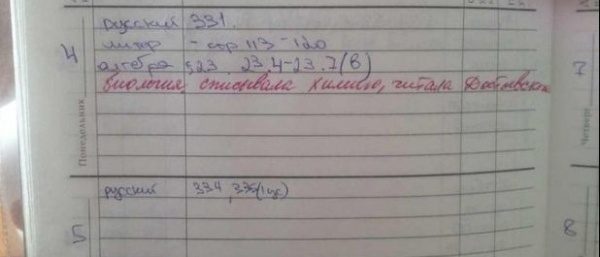 4
Понедельник
русский 331.
литер - стр 113-120
алгебра §23. 23.4-23.7(в)
биология списывала химию, читала Достоевского
5
русский 334, 336(
7
Четверг
8